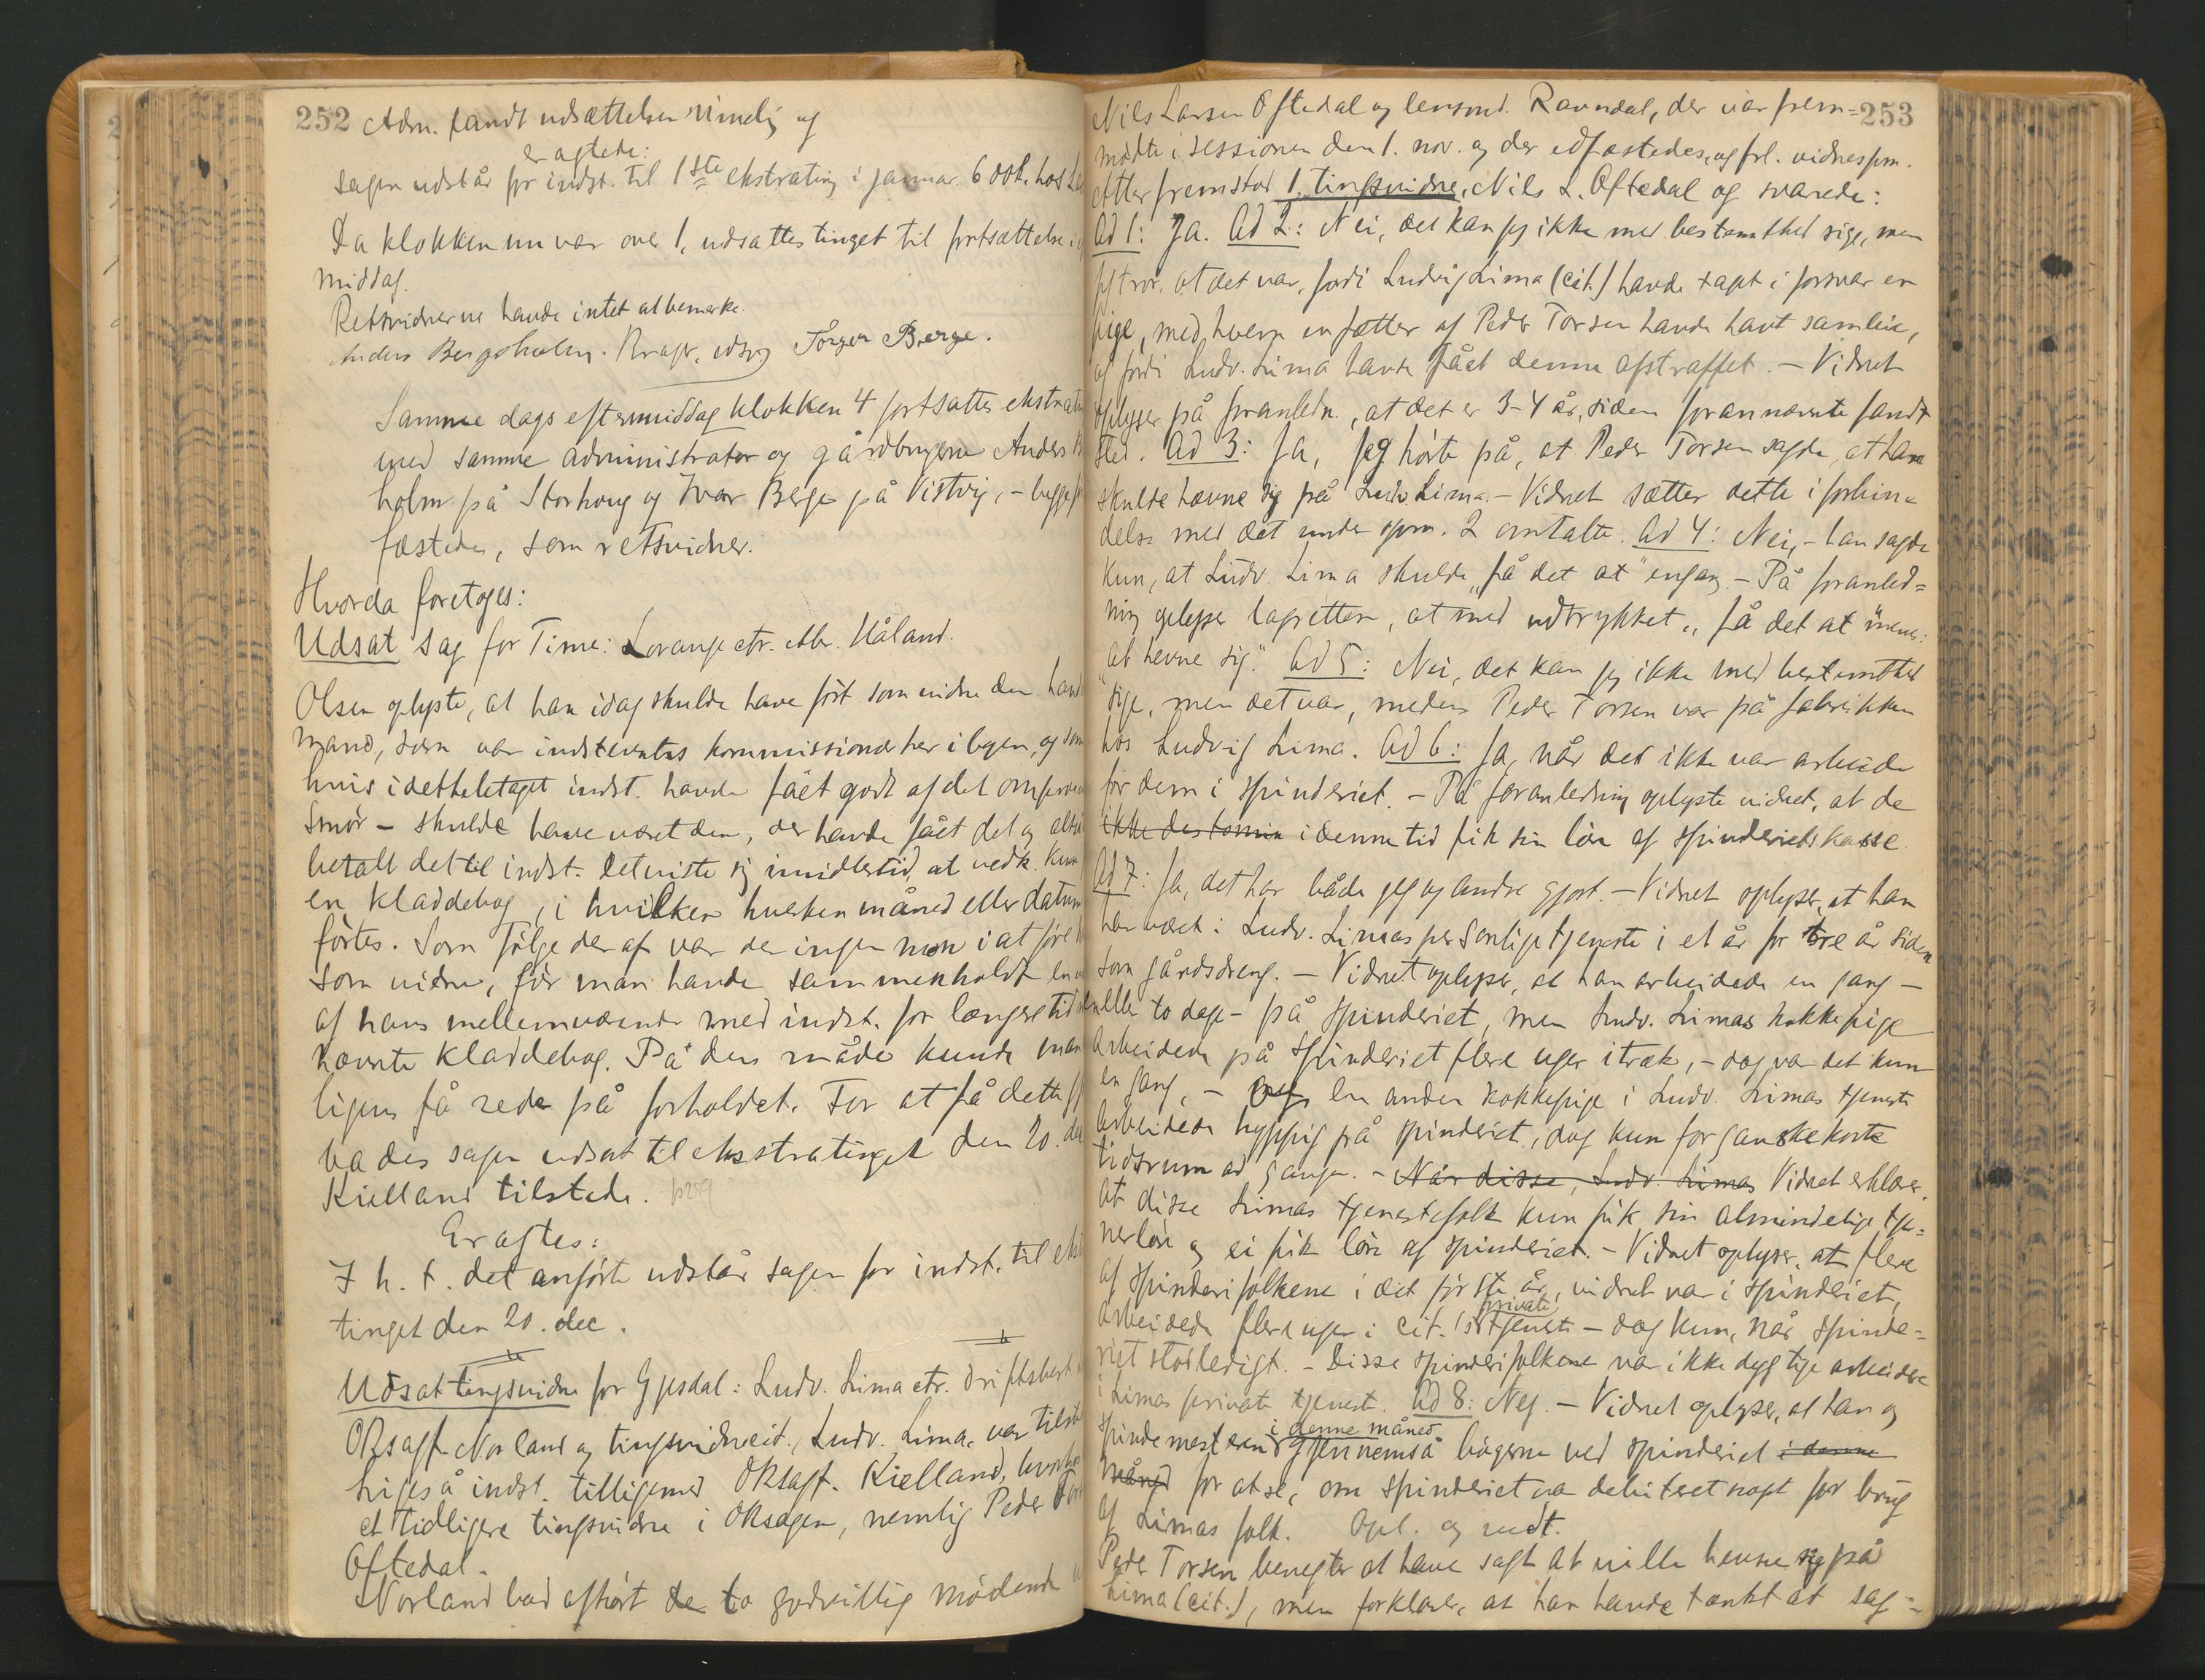 252
Adm. fandt udsættelsen rimelig og
eragtede:
Sagen udstår for indst. til 1ste ekstrating i januar
Da klokken nu var over 1, udsattes tinget til fortsættelse
middag.
Retsvidnerne havde intet at bemerke.
Anders Bergsholm. Berge.
Samme dags eftermiddag klokken 4 fortsattes
med samme administrator og gårdbrugerne Anders
holm på Storhoug og Ivar Berge på Vistvig, – begge
fæstede, som retsvidner.
Hvorda foretoges:
Udsat sag for Time: Lorange ctr. Håland.
Olsen oplyste, at han idag skulde have ført som vidne den
mand, som var indstevntes kommissionær her i byen, og som
hvis idetheletaget indst. havde fået godt af det
Smør – skulde have været den, der havde fået det og
betalt det til indst. Det viste sig imidlertid, at vedk. kun
en kladdebog, i hvilken hverken måned eller datum
førtes. Som følge deraf var der ingen mon i at føre
som vidne, før man havde sammenholdt en
af hans mellemværende med indst. for længere tid
nævnte kladdebog. På den måde kunde man
ligens få rede på forholdet. For at få dette
bades sagen udsat til ekstratinget den 20.
Kielland tilstede.
Eragtes:
I h. t. det anførte udstår sagen for indst. til
tinget den 20. dec.
Udsat tingsvidne for Gjesdal: Ludv. Lima ctr.
ORsagf. Norland og tingsvidnecit., Ludv. Lima, var
Ligeså indst. tilligemed ORsagf. Kielland,
et tidligere tingsvidne i ORsagen, nemlig Peder
Oftedal.
Norland bad afhørt de to godvillig mødende
253
Nils Larsen Oftedal og lensmd. Ravndal, der var frem=
mødte i sessionen den 1. nov. og der edfæstedes, og frl. vidnespm.
Atter fremstod 1. tingsvidne, Nils L. Oftedal og svarede:
Ad 1: Ja. Ad 2: Nei, det kan jeg ikke med bestemthed sige, men
jeg tror, at det var, fordi Ludvig Lima (cit.) havde tagt i forsvar en
pige, med hvem en fætter af Peder Torsen havde havt samleie,
og fordi Ludv. Lima havde fået denne afstraffet. – Vidnet
oplyser på foranledn., at det er 3-4 år, siden forannævnte fandt
sted. Ad 3: Ja, jeg hørte på, at Peder Torsen sagde, at han
skulde hævne sig på Ludv. Lima. – Vidnet sætter dette i forbin=
delse med det under spm. 2 omtalte. Ad 4: Nei, – han sagde
kun, at Ludv. Lima skulde „få det at" engang. – På foranled=
ning oplyser lagretten, at med udtrykket „få det at" menes:
„at hevne sig." Ad 5: Nei, det kan jeg ikke med bestemthed
sige, men det var, medens Peder Torsen var på fabrikken
hos Ludvig Lima. Ad 6: Ja, når det ikke var arbeide
for dem i spinderiet. – På foranledning oplyste vidnet, at de
ikke destomin i denne tid fik sin løn af spinderiets kasse.
Ad 7: Ja, det har både jeg og andre gjort. – Vidnet oplyser, at han
har været i Ludv. Limas personlige tjeneste i et år for tre år siden
som gårdsdreng. – Vidnet oplyser, at han arbeidede en gang –
eller to dage – på spinderiet, men Ludv. Limas kokkepige
arbeidede på spinderiet flere uger itræk, – dog var det kun
en gang, – en anden kokkepige i Ludv. Limas tjeneste
arbeidede hyppig på spinderiet, dog kun for ganske korte
tidsrum ad gangen. – Når disse, Ludv. Limas Vidnet erklærer,
at disse Limas tjenestefolk kun fik sin almindelige tje=
nerløn og ei fik løn af spinderiet. – Vidnet oplyser, at flere
af spinderifolkene i det første år, vidnet var i spinderiet,
arbeidede flere uger i cit.'s private tjeneste – dog kun, når spinde=
riet stod ledigt. – Disse spinderifolkene var ikke dygtige arbeidere
i Limas private tjeneste. Ad 8: Nej. – Vidnet oplyser, at han og
spindemesteren i denne måned gjennemså bøgerne ved spinderiet i denne
måned for at se, om spinderiet var debiteret noget for brug
af Limas folk. Opl. og vedt.
Peder Torsen benegter at have sagt at ville hevne sig på
Lima (cit.), men forklarer, at han havde tænkt at sag=